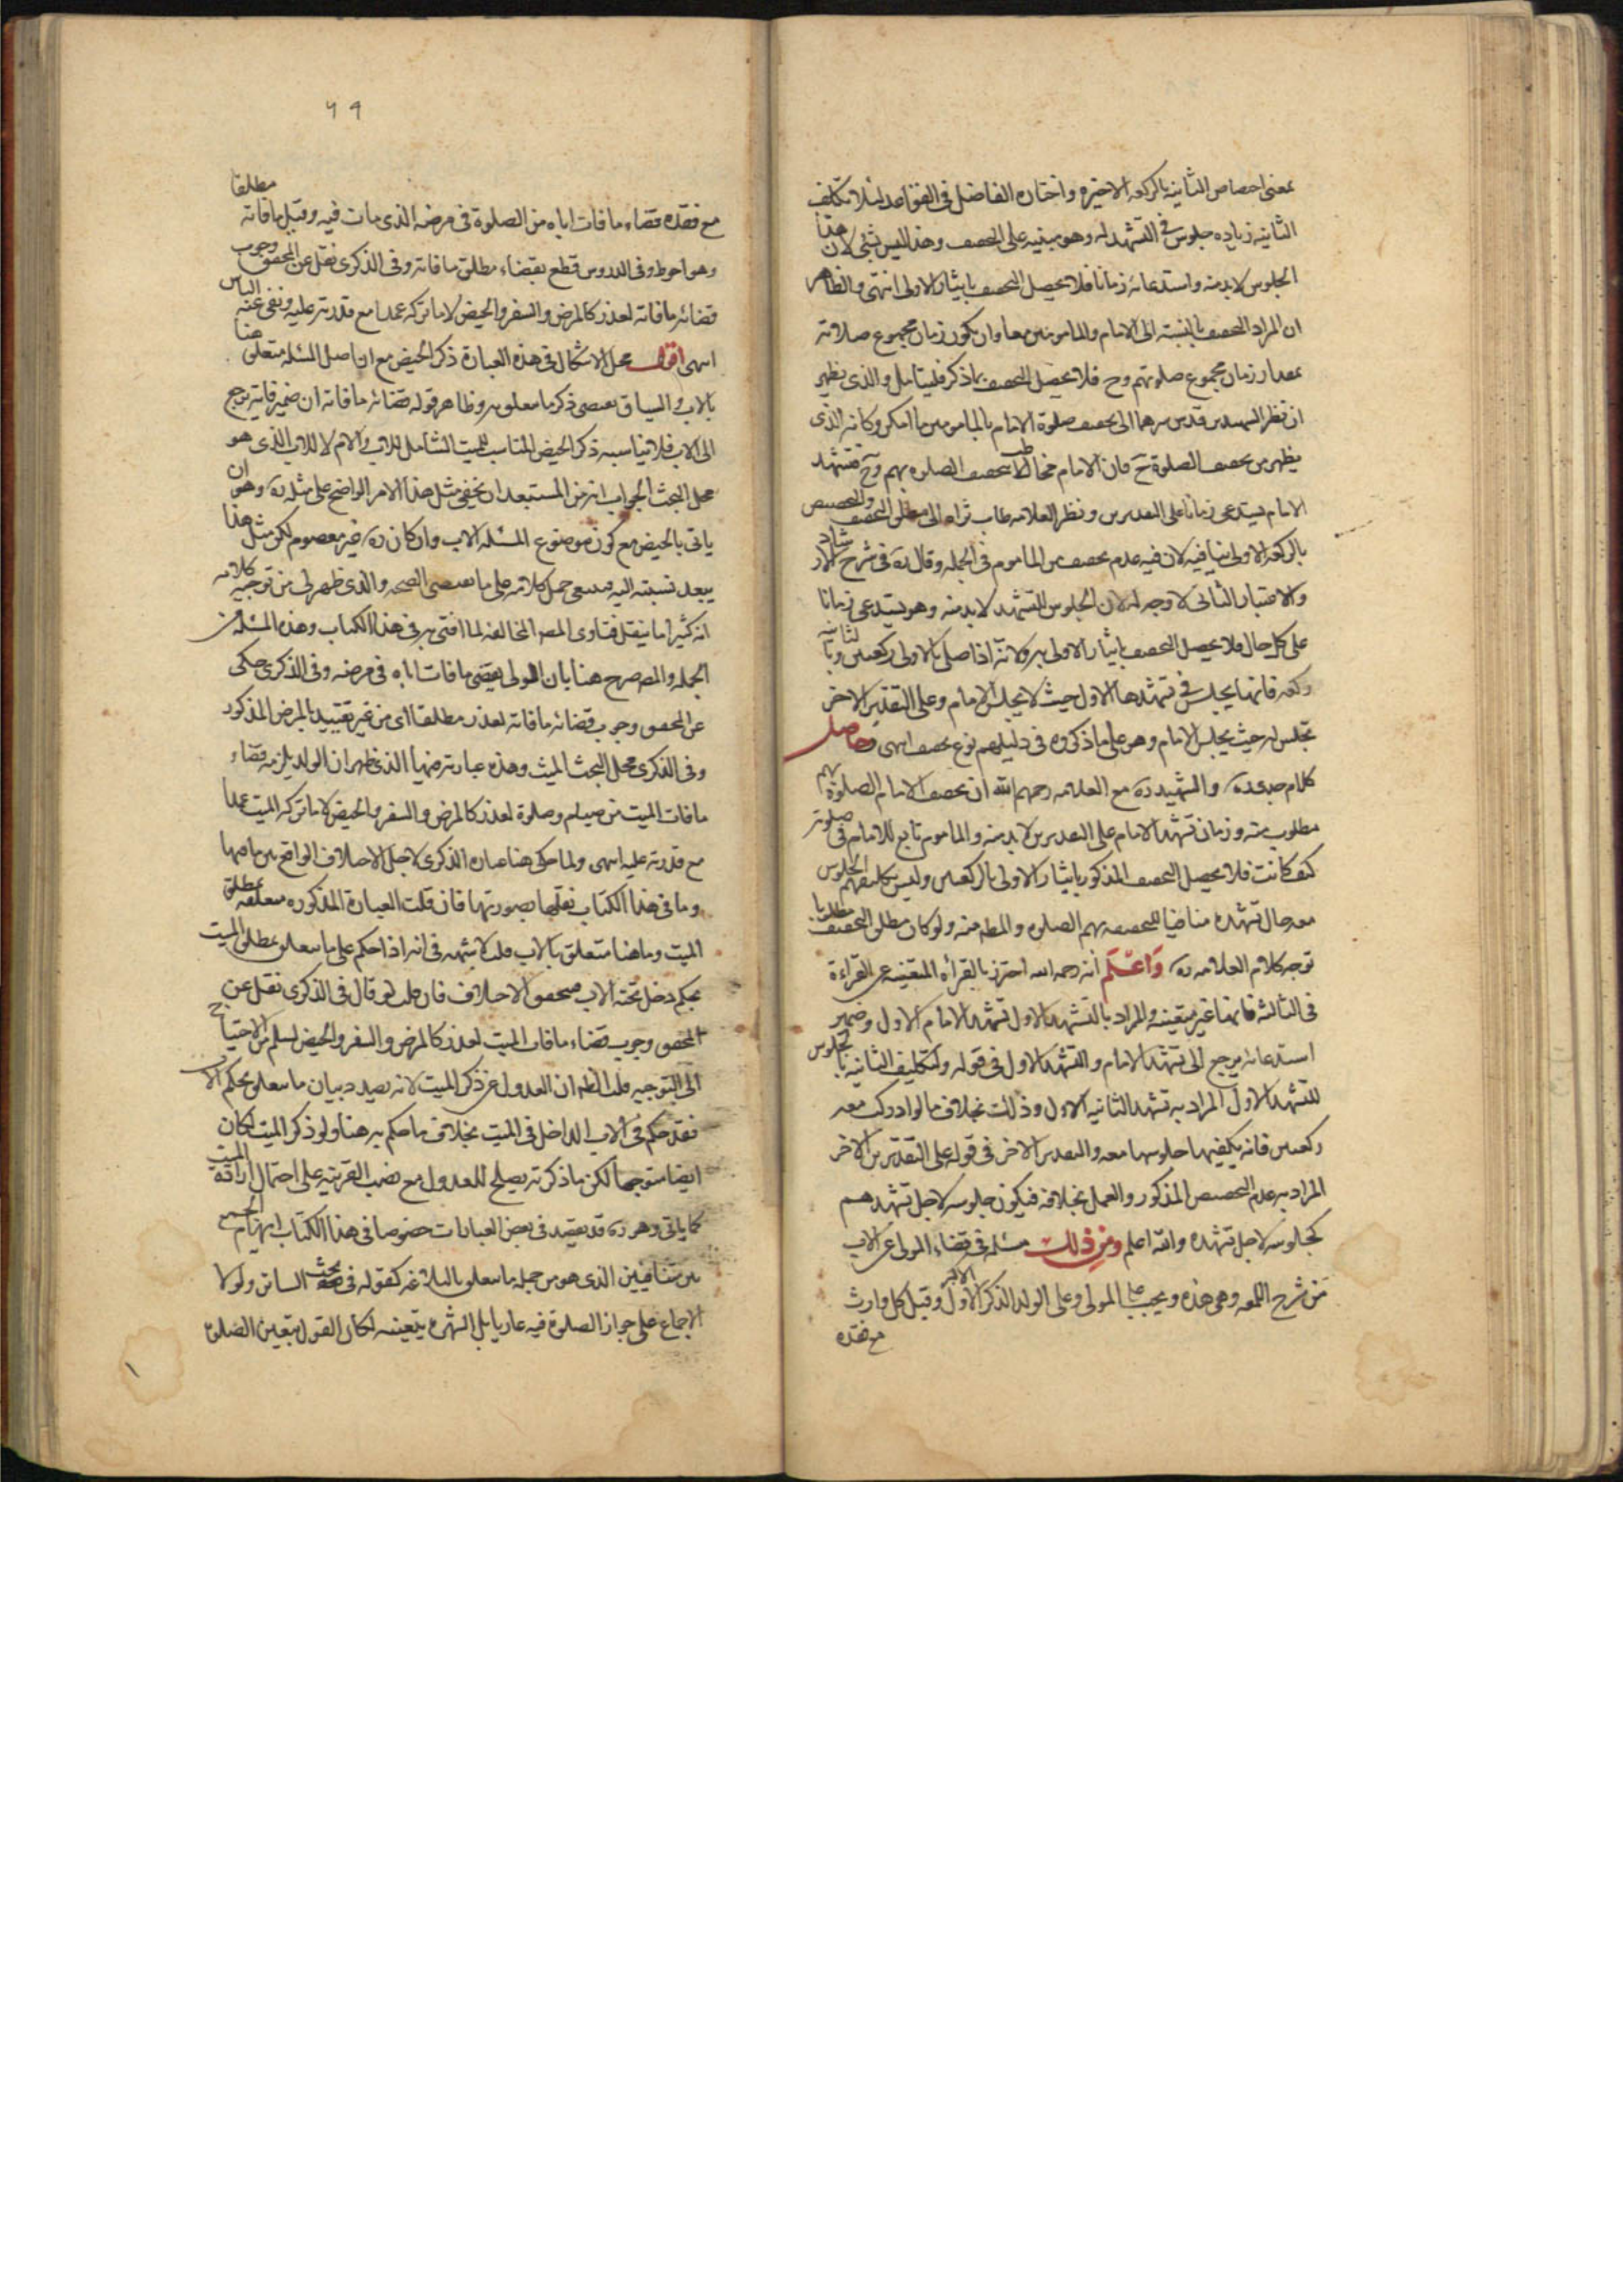 بمعنى اختصاص الثانيه بالركعه الاخيره واختاره الفاضل فى القواعد لئلا تكلف
الثانيه زياده جلوس فى التشهد له وهو مبنيه على التخفيف وهذا ليس بشئ لان هذا
الجلوس لا بد منه واستدعائه زمانا فلا يحصل التخفيف بايثار الاولى انتهى والظاهر
ان المراد التخفيف بالنسبة الى الامام والمامومين معا وان يكون زمان مجموع صلاته
بمقدار زمان مجموع صلوتهم وح فلا يحصل التخفيف بما ذكر فليتامل والذى يظهر
ان نظر الشهيدين قدس سرهما الى تخفيف صلوة الامام بالمامومين ما امكن وكانه الذى
يظهر من تخفيف الصلوة ح فان الامام مخاطب بتخفيف الصلوه بهم وح فتشهد
الامام يستدعى زمانا على التقديرين ونظر العلامه طاب ثراه الى مطلق التخفيف والتخصيص
بالركعه الاولى ينافيه لان فيه عدم تخفيف من الماموم فى الجمله وقال ره فى شرح الارشاد
والاعتبار الثانى لا وجه له لان الجلوس للتشهد لا بد منه وهو يستدعى زمانا
على كل حال فلا يحصل التخفيف بايثار الاولى به ولانه اذا صلى بالاولى ركعتين وبالثانيه
ركعه فانها يجلس فى تشهدها الاول حيث لا يجلس الامام وعلى التقدير الاخر
تجلس له حيث يجلس الامام وهو على ما ذكروه فى دليلهم نوع تخفيف انتهى وحاصل
كلام جدى ره والشهيد ره مع العلامه رحمهم الله ان تخفيف الامام الصلوة بهم
مطلوب منه وزمان تشهد الامام على التقديرين لا بد منه والماموم تابع للامام فى صلوته
كيف كانت فلا يحصل التخفيف المذكور بايثار الاولى بالركعتين وليس تكليفهم الجلوس
معه حال تشهده منافيا لتخفيفه بهم الصلوه والمط منه ولو كان مطلق التخفيف مطلوبا
توجه كلام العلامه ره واعلم انه رحمه الله احترز بالقرأه المتعينه عن القراءة
فى الثالثه فانها غير متعينه والمراد بالتشهد الاول تشهد الامام الاول وضمير
استدعائه يرجع الى تشهد الامام والتشهد الاول فى قوله ولتكليف الثانيه بالجلوس
للتشهد الاول المراد به تشهد الثانيه الاول وذلك بخلاف ما لو ادركت معه
ركعتين فانه يكفيها جلوسها معه والتقدير الاخر فى قوله على التقديرين الاخر
المراد به عدم التخصيص المذكور والعمل بخلافه فيكون جلوسه لاجل تشهدهم
كجلوسه لاجل تشهده والله اعلم ومن ذلك مسئله فى قضاء المولى عن الاب
من شرح اللمعه وهى هذه ويجب على المولى وعلى الولد الذكر الاكبر الاول وقيل كل وارث
مع فقده
٦٩
مع فقده قضاء ما فات اباه من الصلوة فى مرضه الذى مات فيه وقيل ما فاته مطلقا
وهو احوط وفى الدروس قطع بقضاء مطلق ما فاته وفى الذكرى نقل عن المحقق وجوب
قضائه ما فاته لعذر كالمرض والسفر والحيض لا ما تركه عمدا مع قدرته عليه ونفى عنه الباس
انتهى اقول محل الاشكال فى هذه العبارة ذكر الحيض مع ان اصل المسئله متعلق هنا
بالاب والسياق يقتضى ذكر ما يتعلق به وظاهر قوله قضائه ما فاته ان ضمير فاته يرجع
الى الاب فلا يناسبه ذكر الحيض المناسب للميت الشامل للاب والام لا للاب الذى هو
محل البحث الجواب انه من المستبعد ان يخفى مثل هذا الامر الواضح على مثله ره وهو ان
ياتى بالحيض مع كون موضوع المسئله الاب وان كان ره غير معصوم لكن مثل هذا
يبعد نسبته اليه فينبغى حمل كلامه على ما يقتضى الصحه والذى ظهر لى من توجيه كلامه
انه كثيرا ما ينقل فتاوى المصـ المخالفه لما افتى به فى هذا الكتاب وهذه المسئله من
الجمله والمصـ صرح هنا بان المولى يقضى ما فات اباه فى مرضه وفى الذكرى حكى
عن المحقق وجوب قضائه ما فاته لعذر مطلقا اى من غير تقييد بالمرض المذكور
وفى الذكرى محل البحث الميت وهذه عبارته فيها الذى ظهر ان الولد يلزمه قضاء
ما فات الميت من صيام وصلوة لعذر كالمرض والسفر والحيض لا ما تركه الميت عمدا
مع قدرته عليه انتهى ولما حكى هنا عباره الذكرى لاجل الاختلاف الواقع بين ما فيها
وما فى هذا الكتاب نقلها بصورتها فان قلت العبارة المذكوره متعلقه بمطلق
الميت وما هنا متعلق بالاب قلت لا شبهه فى انه اذا حكم على ما يتعلق بمطلق الميت
بحكم دخل تحته الاب فيتحقق الاختلاف فان قلت لو قال فى الذكرى نقل عن
المحقق وجوب قضاء ما فات الميت لعذر كالمرض والسفر والحيض لسلم من الاحتياج
الى التوجيه قلت الظ ان العدول عن ذكر الميت لانه بصدد بيان ما يتعلق بحكم الاب
فقد حكم فى الاب الداخل فى الميت بخلاف ما حكم به هنا ولو ذكر الميت لكان
ايضا متوجها لكن ما ذكرته يصلح للعدول مع نصب القرينه على احتمال ارادة الميت
كما ياتى وهو ره قد يقصد فى بعض العبارات خصوصا فى هذا الكتاب ايهام الجمع
بين متنافيين الذى هو من جمله ما يتعلق بالبلاغه كقوله فى بحث الساتر ولولا
الاجماع على جواز الصلوة فيه عاريا بل الشهره بتعينه لكان القول بتعين الصلوة